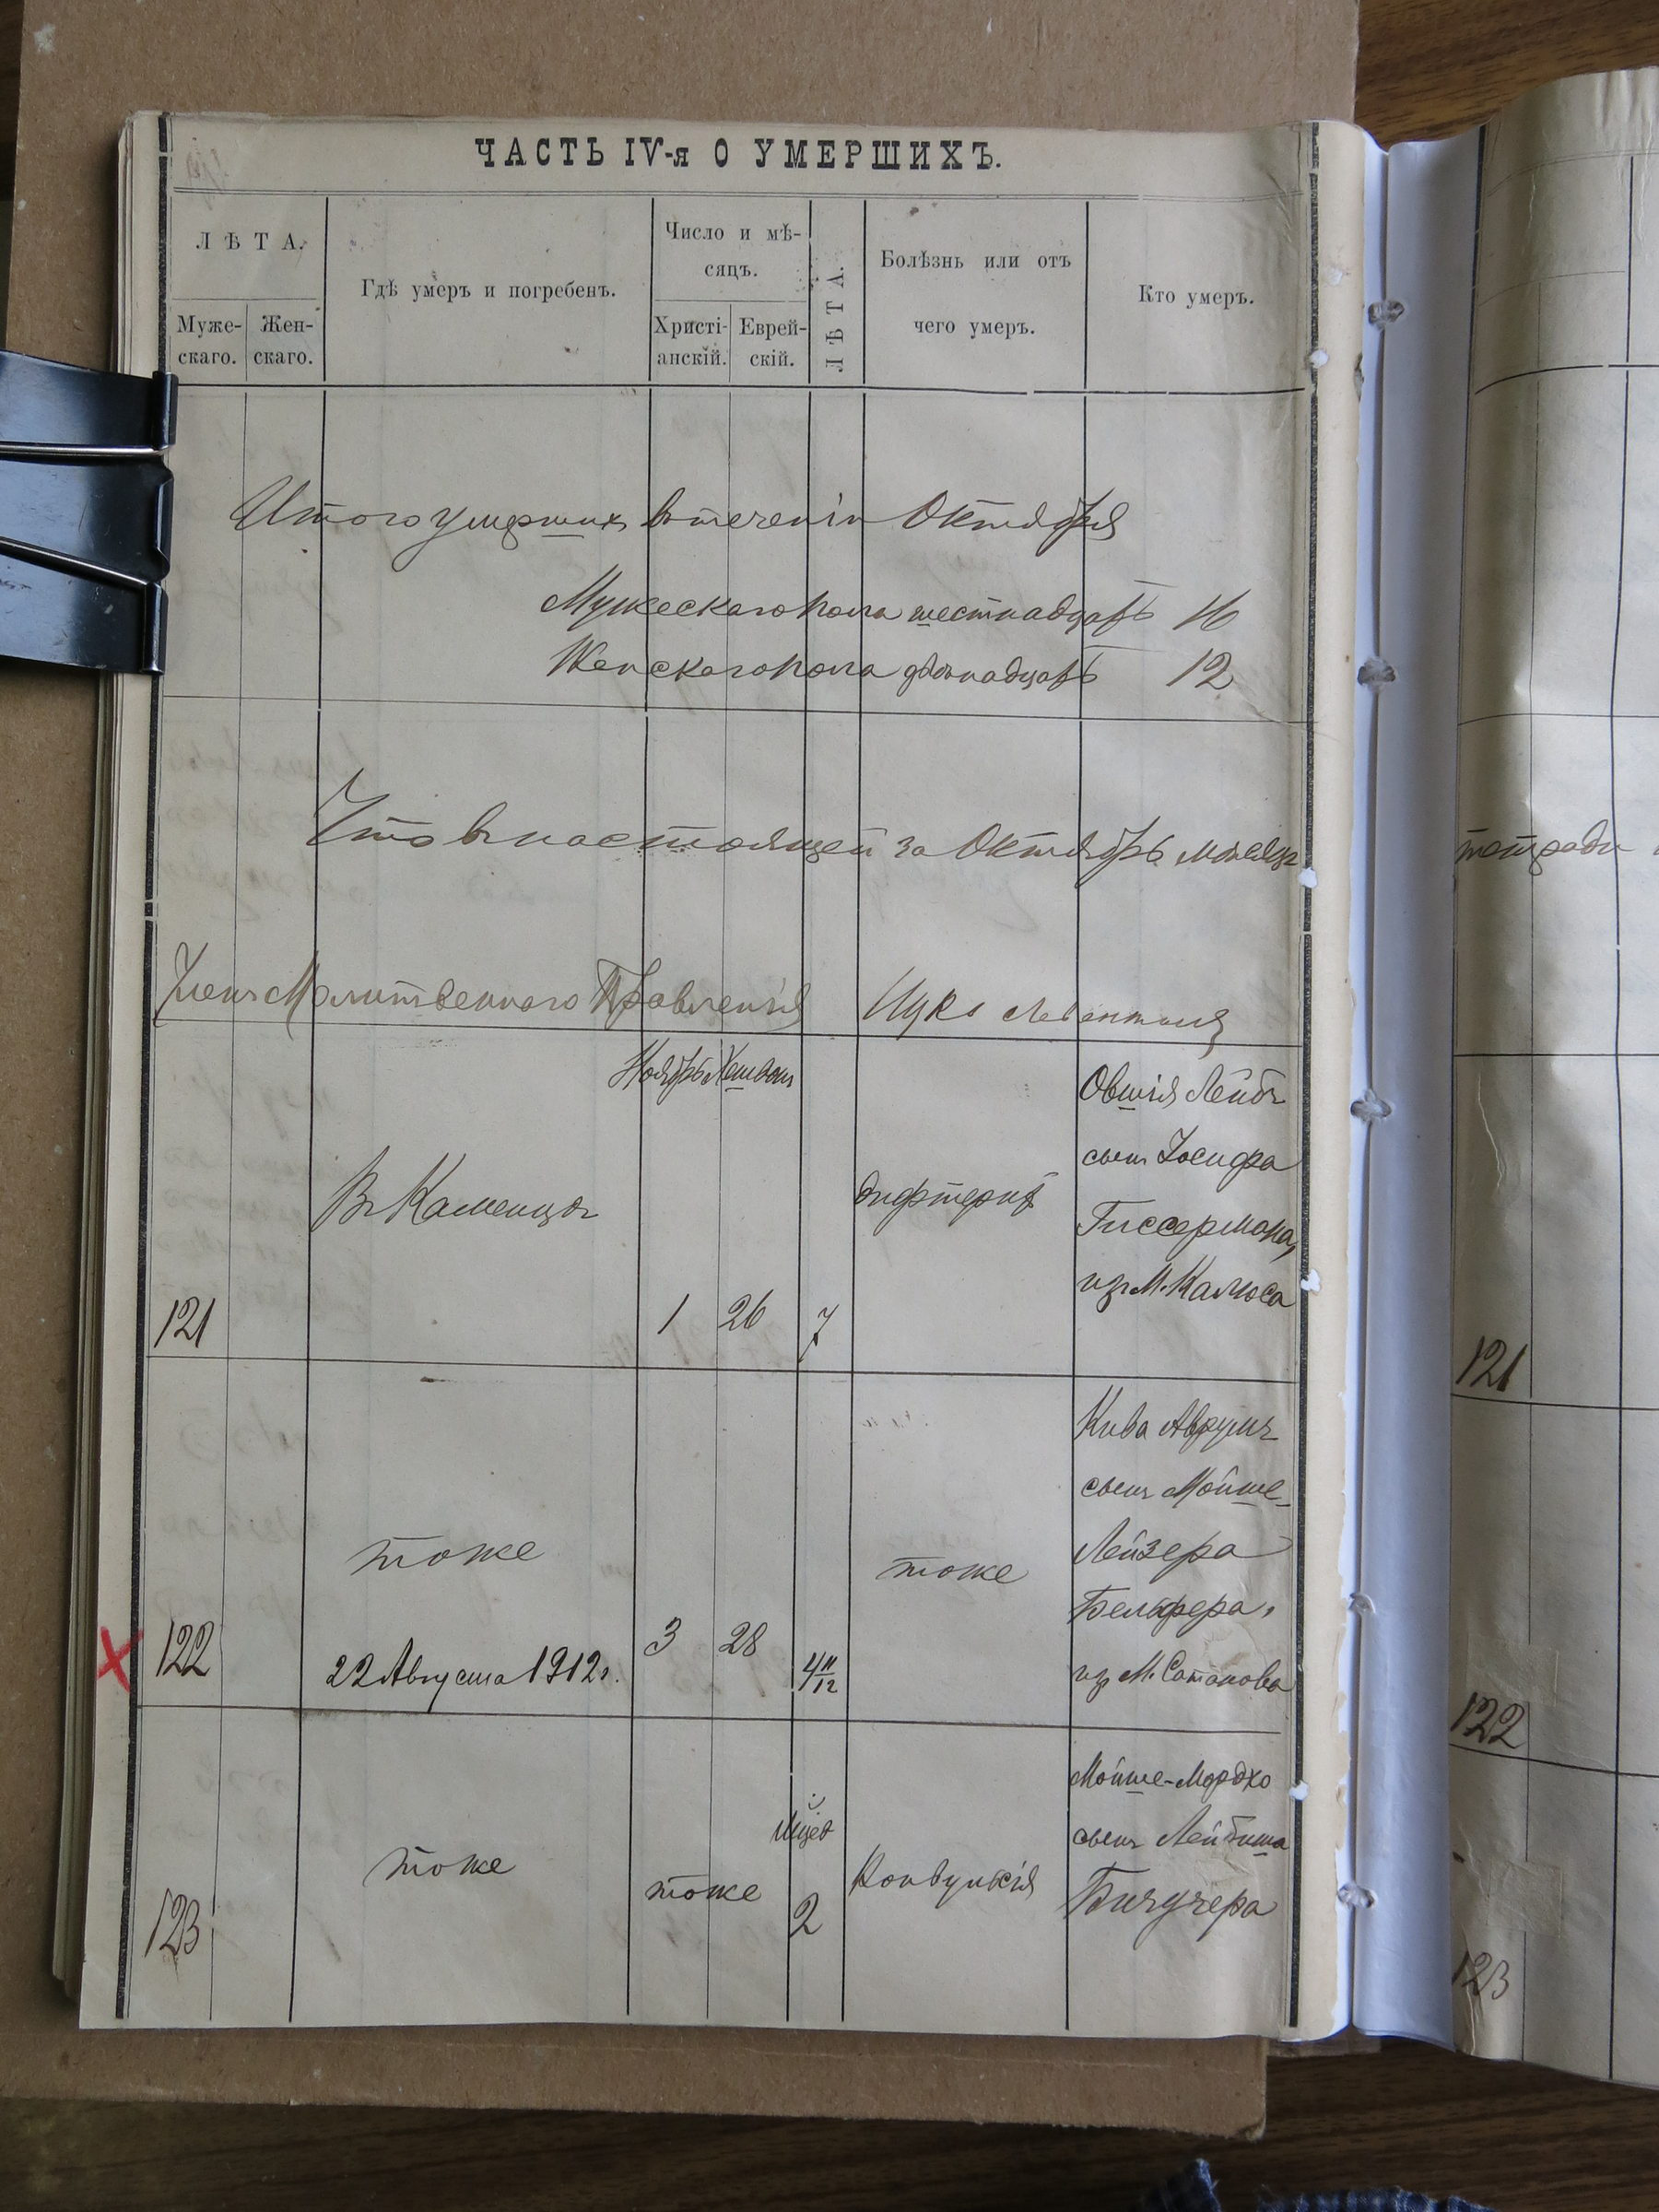 ЧАСТЬ IV-я О УМЕРШИХЪ.
ЛѢТА.
Муже-
скаго.
Жен-
скаго.
Гдѣ умеръ и погребенъ.
Число и мѣ-
сяцъ.
Христі-
анскій.
Еврей-
скій.
ЛѢТА.
Болѣзнь или отъ
чего умеръ.
Кто умеръ.
Итого умершихъ втеченіи Октября
Мужескаго пола шестнадцать 16
Женскаго пола двѣнадцать 12
Что въ настоящей за Октябрь мѣсяцъ
тетради
Членъ Молитвеннаго Правленія
Ноябрь Хешванъ
121
Въ Каменцѣ
1 26 7
дифтеритъ
Овшія Лейбъ
сынъ Іосифа
Гиссермана,
изъ М. Калюса
121
122
тоже
22 Августа 1912г.
3 28 4 11/12
тоже
Кива Аврумъ
сынъ Мойше-
Лейзера
Бельфера,
изъ М. Сатанова
122
123
тоже
тоже
мѣсяц
2
Конвульсія
Мойше-Мордко
сынъ Лейбиша
Бичучера
123